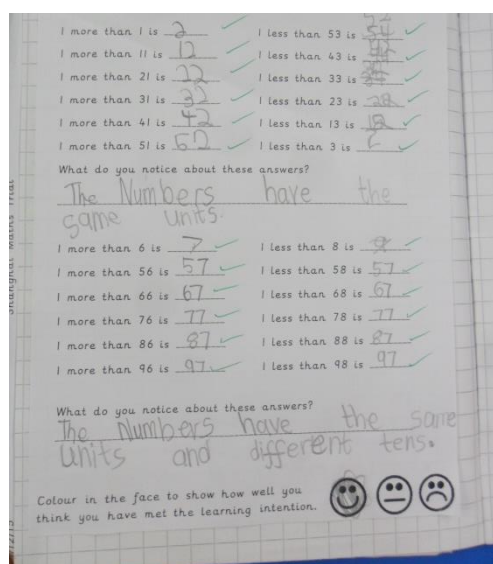 1 more than 1 is 2 ✓ 1 less than 53 is
1 more than 11 is 12 ✓ 1 less than 43 is
1 more than 21 is 22 ✓ 1 less than 33 is
1 more than 31 is 32 ✓ 1 less than 23 is
1 more than 41 is 42 ✓ 1 less than 13 is
1 more than 51 is 52 ✓ 1 less than 3 is
What do you notice about these answers?
The Numbers have the
same units.
1 more than 6 is 7 ✓ 1 less than 8 is
1 more than 56 is 57 ✓ 1 less than 58 is 57 ✓
1 more than 66 is 67 ✓ 1 less than 68 is 67 ✓
1 more than 76 is 77 ✓ 1 less than 78 is 77 ✓
1 more than 86 is 87 ✓ 1 less than 88 is 87 ✓
1 more than 96 is 97 ✓ 1 less than 98 is 97 ✓
What do you notice about these answers?
The Numbers have the same
units and different tens.
Colour in the face to show how well you
think you have met the learning intention.
Shanghai Maths Trial